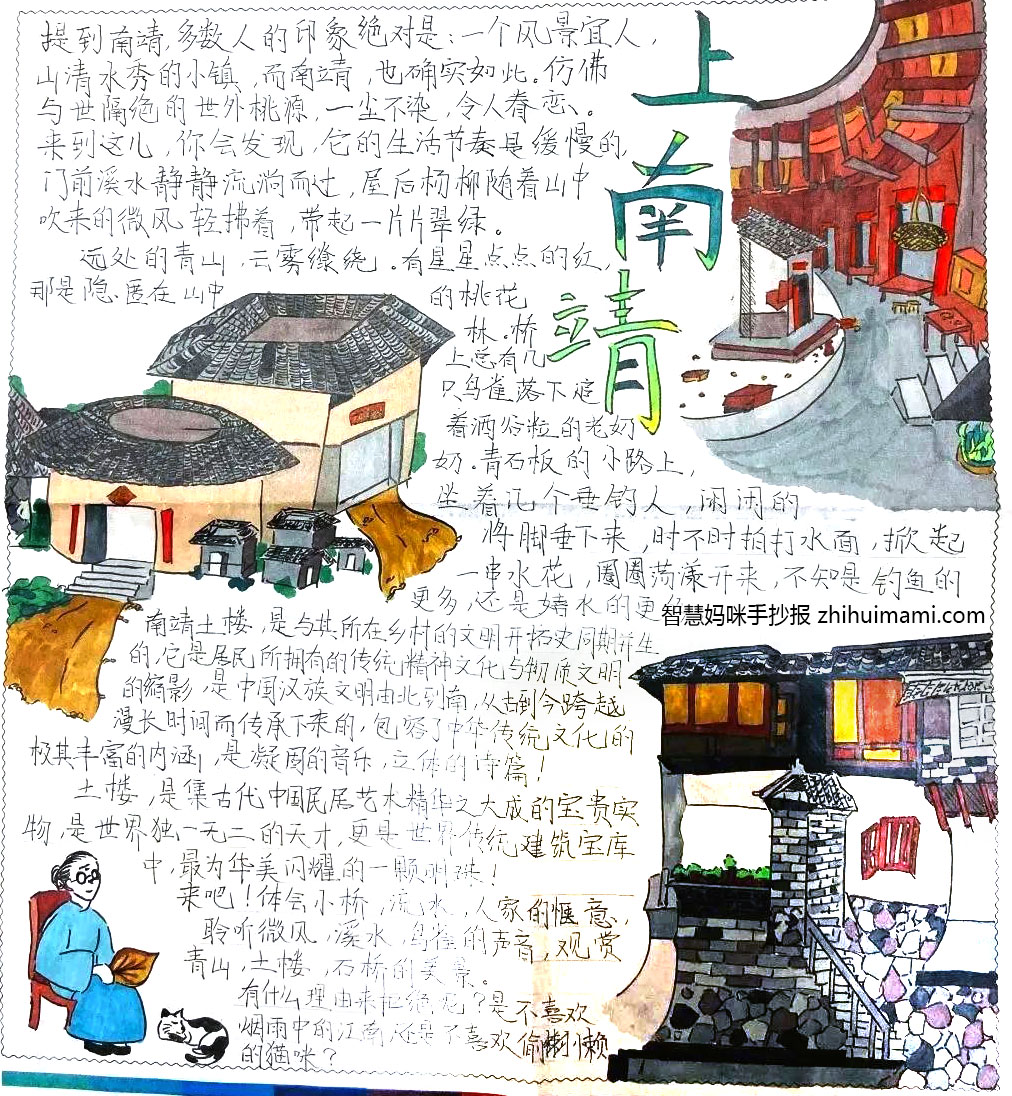 上南靖
提到南靖,多数人的印象绝对是:一个风景宜人,
山清水秀的小镇,而南靖,也确实如此。仿佛
与世隔绝的世外桃源,一尘不染,令人眷恋。
来到这儿,你会发现,它的生活节奏是缓慢的,
门前溪水静静流淌而过,屋后杨柳随着山中
吹来的微风轻拂着,带起一片片翠绿。
远处的青山,云雾缭绕。有星星点点的红,
那是隐匿在山中
的桃花
林。桥
上总有几
只鸟雀落下
着洒谷粒的老奶
奶。青石板的小路上,
坐着几个垂钓人,闲闲的
将脚垂下来,时不时拍打水面,掀起
一串水花,圈圈荡漾开来,不知是钓鱼的
更多,还是嬉水的更
智慧妈咪手抄报 zhihuimami.com
南靖土楼,是与其所在乡村的文明开拓史同期并生
的,它是居民所拥有的传统精神文化与物质文明
的缩影,是中国汉族文明由北到南,从古到今跨越
漫长时间而传承下来的,包容了中华传统文化的
极其丰富的内涵,是凝固的音乐,立体的诗篇!
土楼,是集古代中国民居艺术精华之大成的宝贵实
物,是世界独一无二的天才,更是世界传统建筑宝库
中,最为华美闪耀的一颗明珠!
来吧!体会小桥,流水,人家的惬意,
聆听微风,溪水,鸟雀的声音,观赏
青山,土楼,石桥的美景。
有什么理由来拒绝呢?是不喜欢
烟雨中的江南,还是不喜欢偷懒
的猫咪?